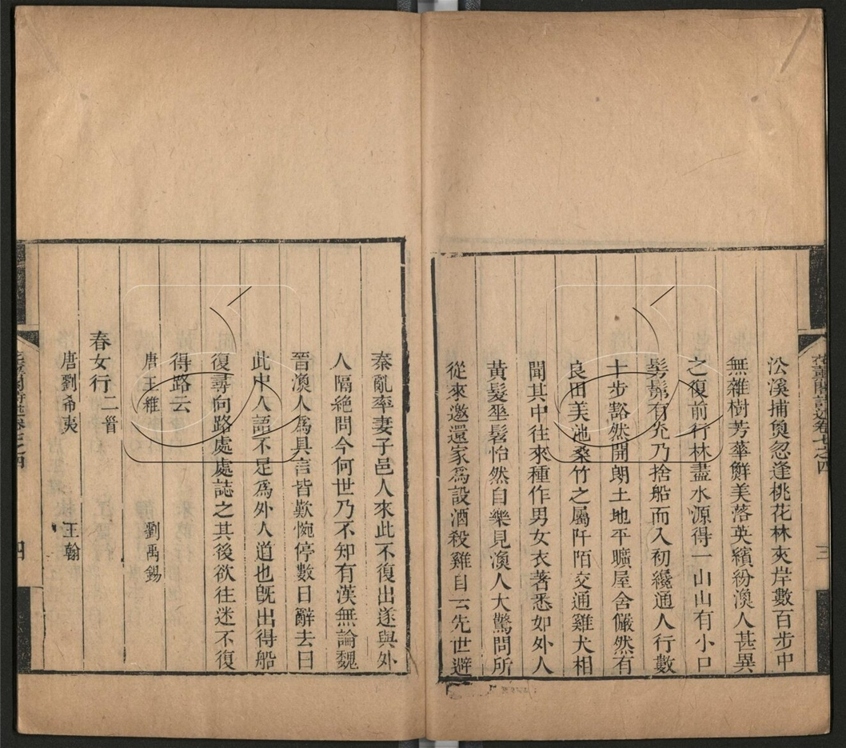 沿溪捕魚忽逢桃花林夾岸數百步中
無雜樹芳華鮮美落英繽紛漁人甚異
之復前行林盡水源得一山山有小口
髣髴有光乃捨船而入初纔通人行數
十步豁然開朗土地平曠屋舍儼然有
良田美池桑竹之屬阡陌交通雞犬相
聞其中往來種作男女衣著悉如外人
黃髮垂髫怡然自樂見漁人大驚問所
從來邀還家爲設酒殺雞自云先世避
秦亂率妻子邑人來此不復出遂與外
人隔絶問今何世乃不知有漢無論魏
晉漁人爲具言皆歎惋停數日辭去曰
此中人語不足爲外人道也旣出得船
復尋向路處處誌之其後欲往迷不復
得路云
唐王維 劉禹錫
春女行二首
唐劉希夷 王翰
三
四